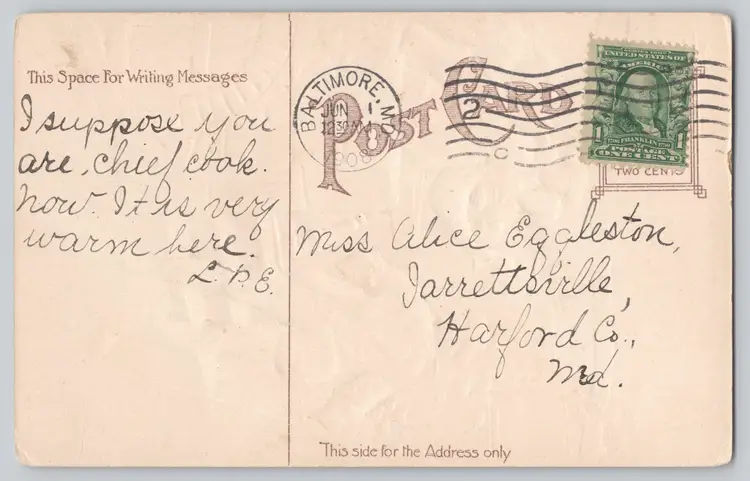 This Space For Writing Messages
I suppose you
are, chief cook.
now. It is very
warm here.
L. P. E.
POST CARD
BALTIMORE, MD.
JUN 1
12 30
1908
2
C
UNITED STATES OF
AMERICA
1 FRANKLIN 1
POSTAGE
ONE CENT
TWO CENTS
Miss Alice Eggleston,
Jarrettsville,
Harford Co.,
Md.
This side for the Address only